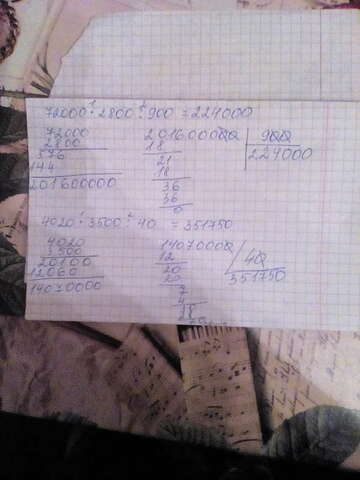 72000 · 2800 : 900 = 224000
72000
2800
576
144
201600000
201600000
900
224000
18
21
18
36
36
0
4020 · 3500 : 40 = 351750
4020
3500
20100
12060
14070000
14070000
40
351750
12
20
20
7
4
28